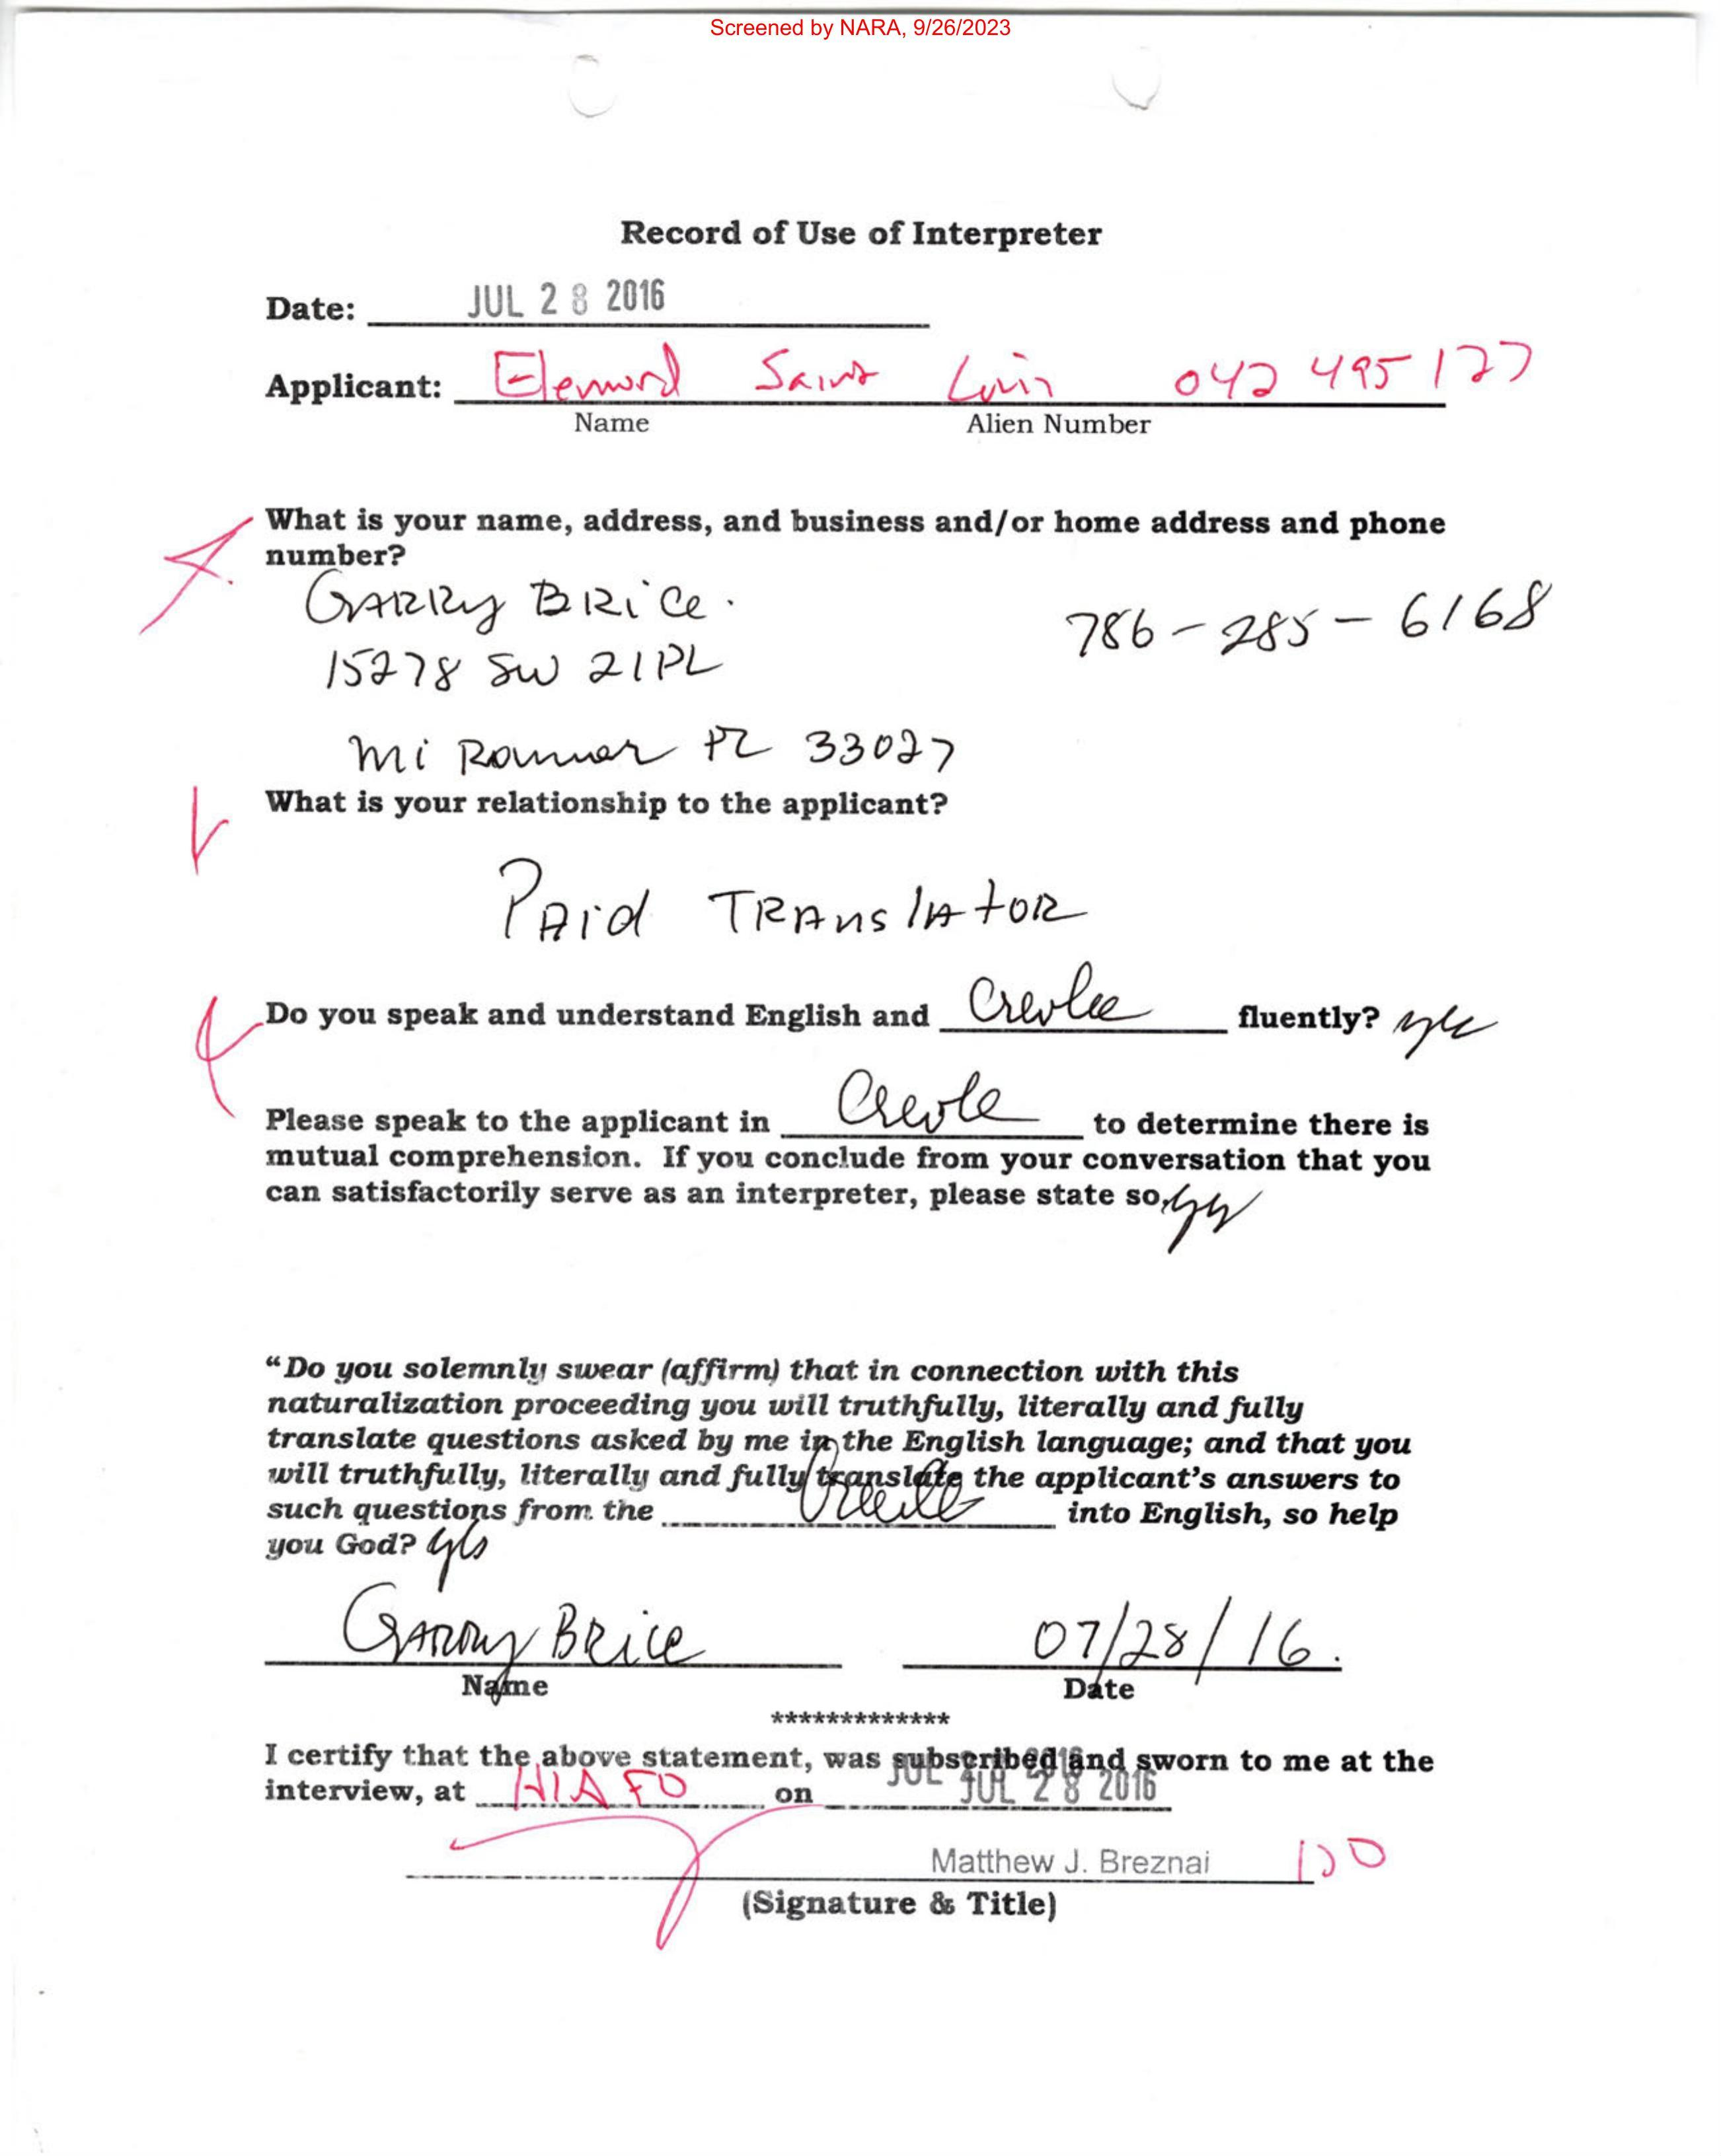 Screened by NARA, 9/26/2023
Record of Use of Interpreter
Date: JUL 28 2016
Applicant: Saint Louis 042 495 127
Name Alien Number
What is your name, address, and business and/or home address and phone
number?
GARRY BRiCe. 786-285-6168
15278 SW 21PL
MiRamar FL 33027
What is your relationship to the applicant?
PAid TRAnslAtoR
Do you speak and understand English and Creole fluently? yes
Please speak to the applicant in Creole to determine there is
mutual comprehension. If you conclude from your conversation that you
can satisfactorily serve as an interpreter, please state so. yes
“Do you solemnly swear (affirm) that in connection with this
naturalization proceeding you will truthfully, literally and fully
translate questions asked by me in the English language; and that you
will truthfully, literally and fully translate the applicant's answers to
such questions from the Creole into English, so help
you God? yes
GARRy BRice 07/28/16.
Name Date
*************
I certify that the above statement, was subscribed and sworn to me at the
interview, at HIAFO on JUL 28 2016
Matthew J. Breznai ISO
(Signature & Title)